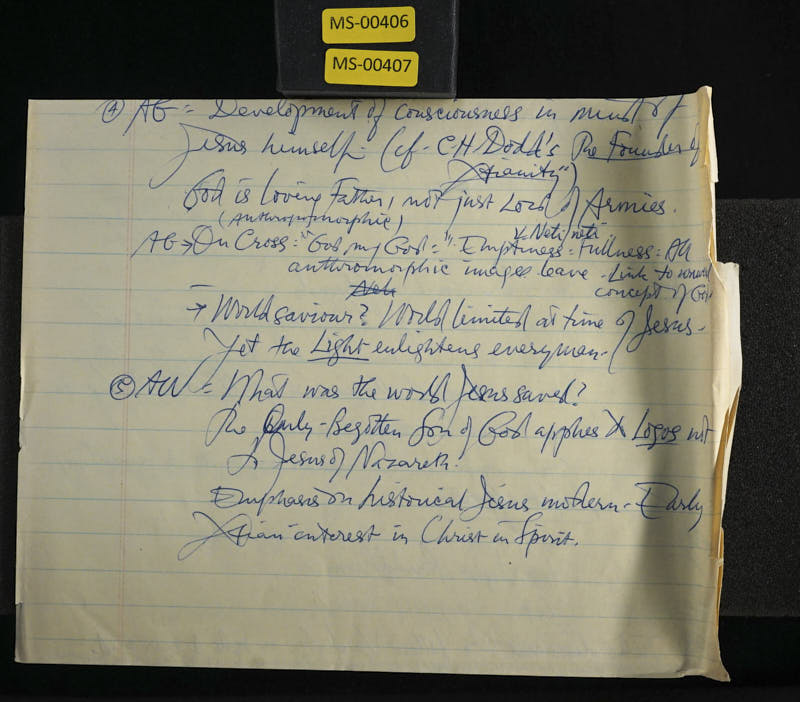 MS-00406
MS-00407
④ AG = Development of consciousness in mind of
Jesus himself - (cf - C.H Dodd's The Founder of
Xtianity")
God is loving Father, not just Lord of Armies.
(Anthropomorphic)
Neti neti
AG → On Cross: "God my God = " Emptiness = Fullness: All
anthromorphic images leave - Link to
concept of God
Neti
→ World saviour? World limited at time of Jesus -
Yet the Light enlightens everyman -
⑤ AW = What was the world Jesus saved?
The Only-Begotten Son of God applies to Logos not
to Jesus of Nazareth.
Emphasis on historical Jesus modern - Early
Xtian interest in Christ in Spirit.